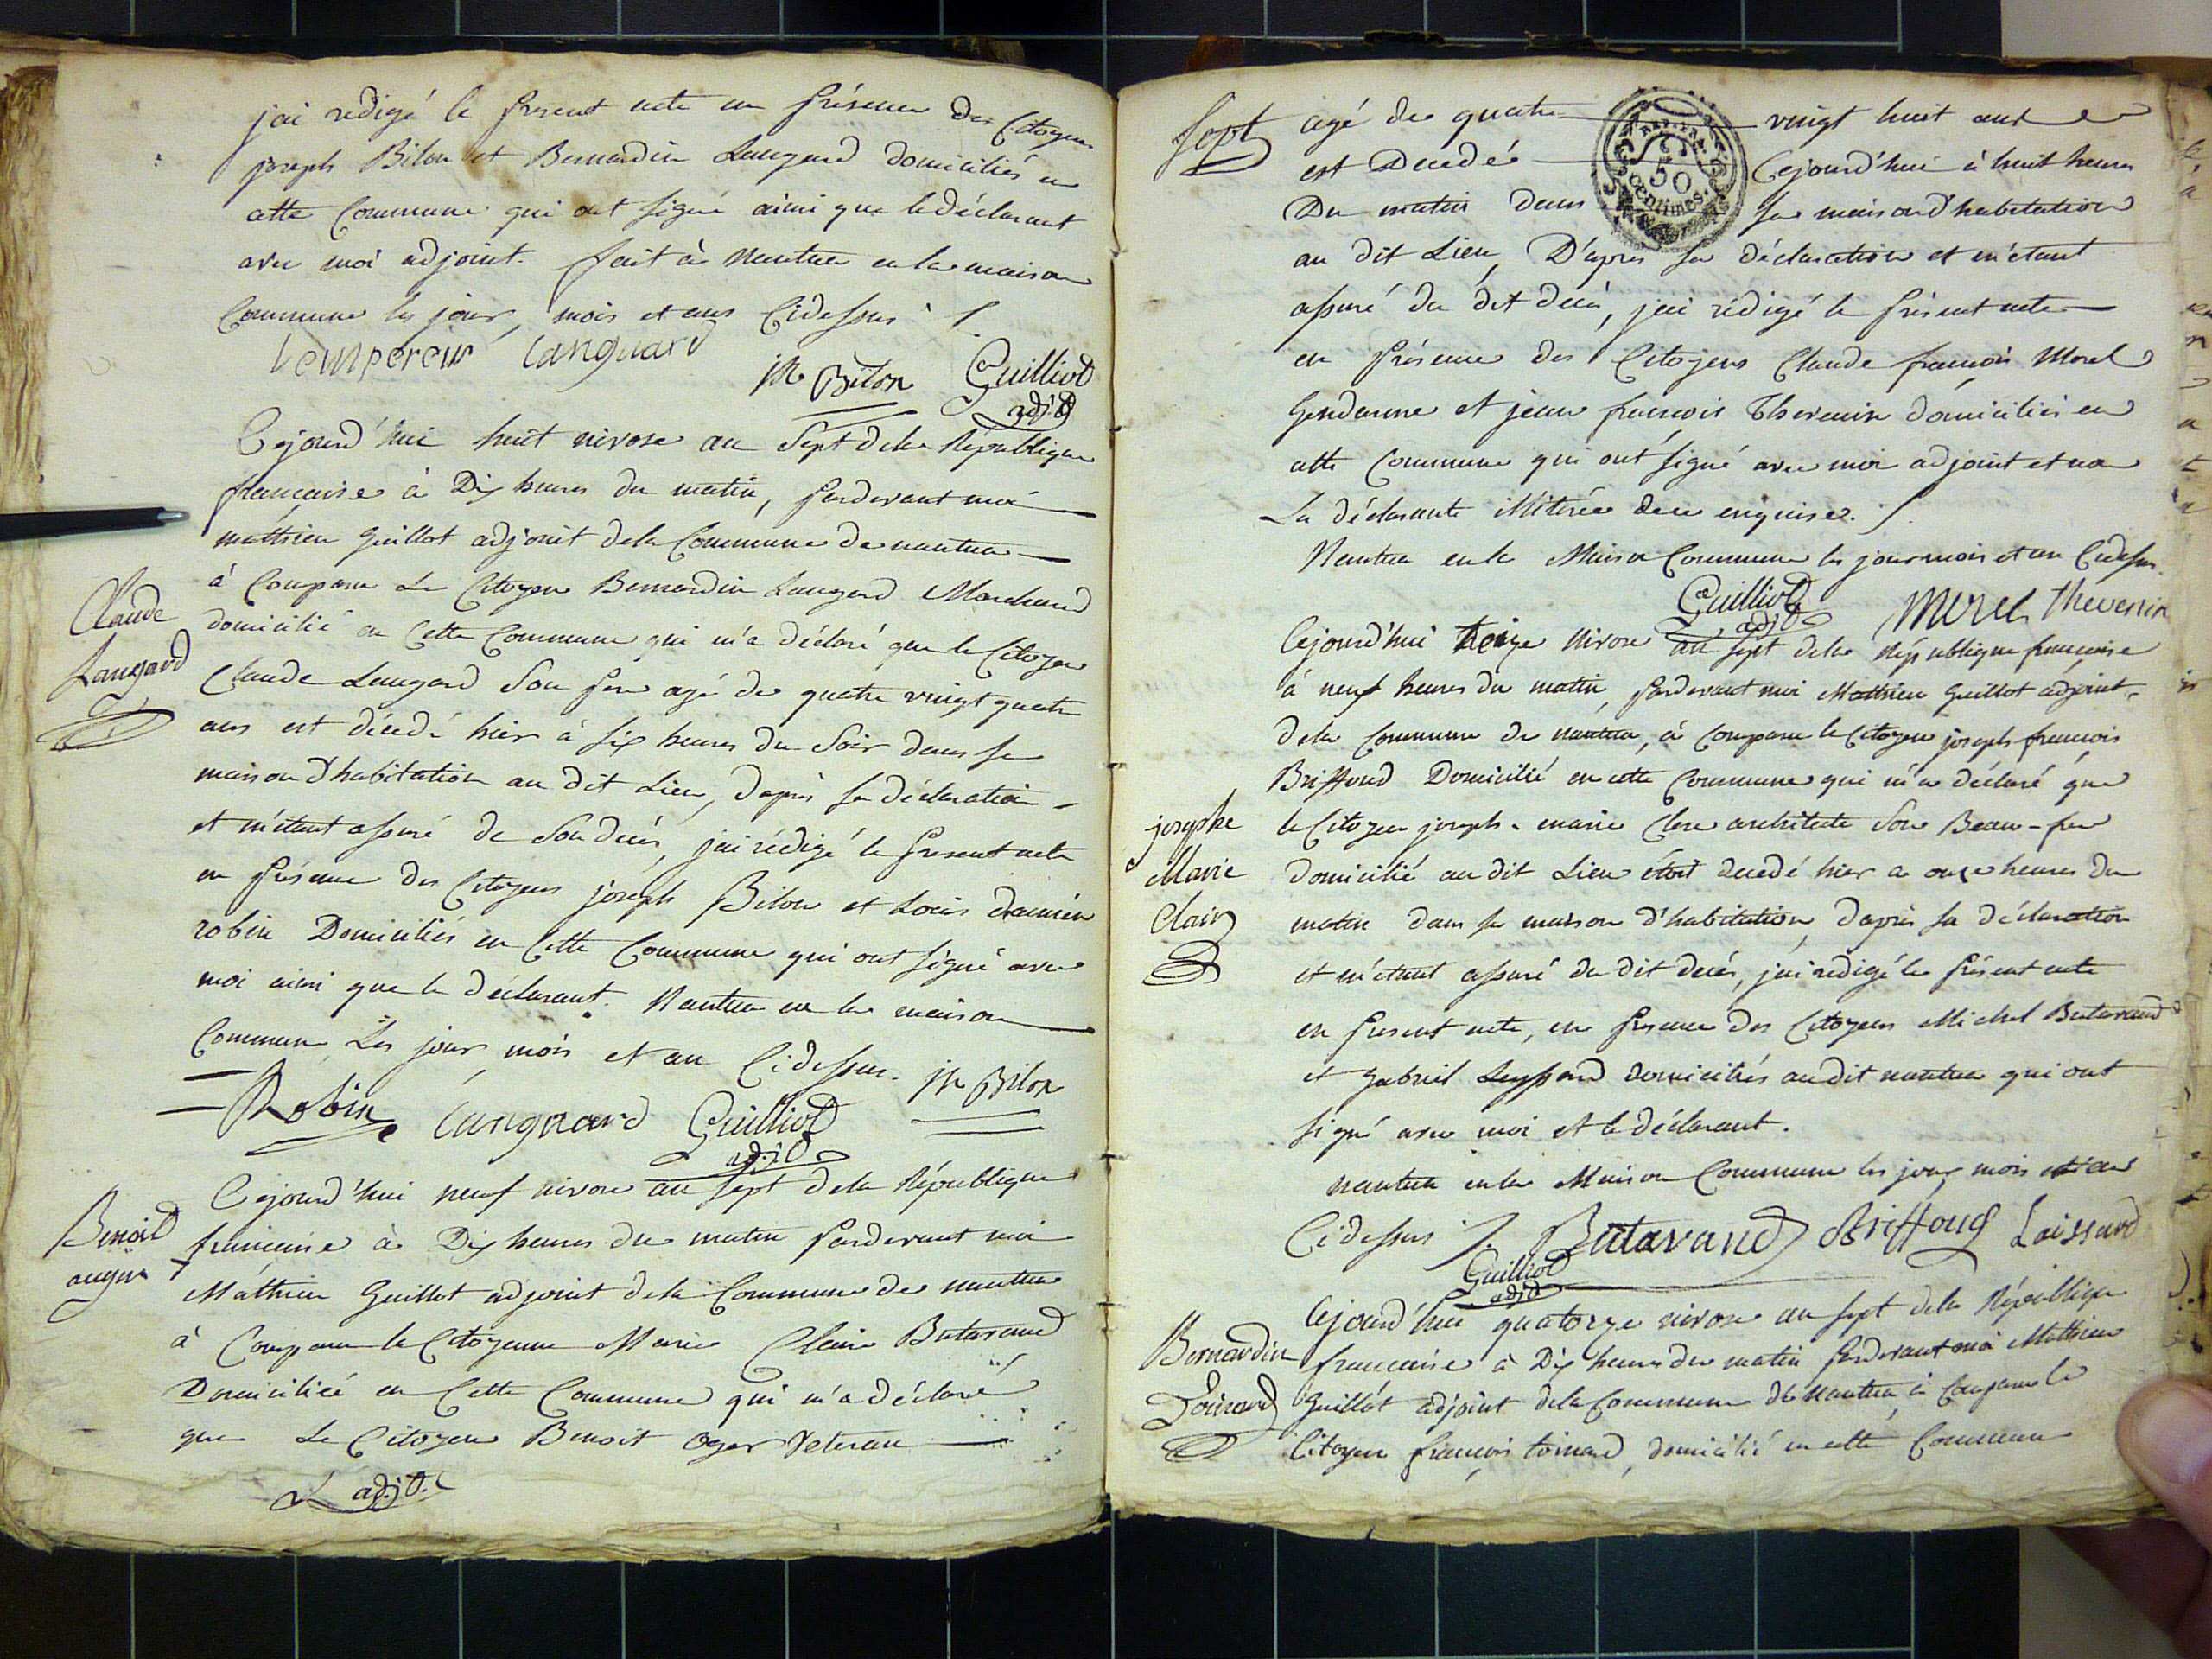 jai redigé le present acte en présence des Citoyens
joseph Bilon et Bernardin Langard domiciliés en
cette Commune qui ont signé ainsi que le déclarant
avec moi adjoint. fait à Nantua en la maison
Commune les jour, mois et ans Cidessus
Lempereur Langnard
jh Bilon Guilliot
adjt
Cejourd'hui huit nivose an Sept dela République
francaise à Dix heures du matin, pardevant moi
mathieu Guillot adjoint dela Commune de nantua
à Comparu Le Citoyen Bernardin Langard Marchand
domicilié en Cette Commune qui m'a déclaré que le Citoyen
Claude Langard Son pere agé de quatre vingt quatre
ans est décedé hier à six heures du Soir dans sa
maison d'habitation au dit Lieu, daprès sa déclaration
et m'étant assuré de Son decès, jai rédigé le present acte
en présence des Citoyens joseph Bilon et Louis damien
robin Domiciliés en Cette Commune qui ont signé avec
moi ainsi que le déclarant. Nantua en la maison
Commune Les jour, mois et an Cidessus.
Robin Langnard Guilliot jh Bilon
adjt
Claude
Langard
Cejourd'hui neuf nivose an sept dela République
francaise à Dix heures du matin pardevant moi
Mathieu Guillot adjoint dela Commune de nantua
à Comparu la Citoyenne Marie Claire Butavand
Domiciliée en Cette Commune qui m'a déclaré
que Le Citoyen Benoit oger Veteran
adjt.
Benoit
auger
Sept
agé de quatre vingt huit ans
est Decedé Cejourd'hui à huit heures
Du matin dans sa maison d'habitation
50
centimes.
au dit Lieu, D'après sa déclaration et m'étant
assuré du dit decès, jai rédigé le présent acte
en présence des Citoyens Claude francois Morel
Gendarme et jean francois Thevenin domiciliés en
cette Commune qui ont signé avec moi adjoint et non
La déclarante illitérée de ce enquise.
Nantua en la Maison Commune les jour mois et an Cidessus.
Guilliot Morel thevenin
adjt
Cejourd'hui treize nivose an sept dela République francaise
à neuf heures du matin, pardevant moi Mathieu Guillot adjoint
dela Commune de nantua, à Comparu le Citoyen joseph francois
Briffoud Domicilié en cette Commune qui m'a déclaré que
le Citoyen joseph-marie Clere architecte Son Beau-pere
domicilié au dit Lieu étoit decedé hier a onze heures du
matin dans sa maison d'habitation daprès sa déclaration
et m'étant assuré du dit decès, j'ai redigé le présent acte
en present acte, en presence des Citoyens Michel Butavand
et gabriel Leyssard domiciliés au dit nantua qui ont
signé avec moi et le déclarant.
nantua en la Maison Commune les jour mois et an
Cidessus Butavand Briffoud Laissard
Guilliot
adjt
josephe
Marie
Clair
Cejourd'hui quatorze nivose an sept dela République
francaise à Dix heures du matin pardevant moi Mathieu
Guillot adjoint dela Commune de Nantua, à Comparu le
Citoyen francois toinard, domicilié en cette Commune
Bernardin
Doinard